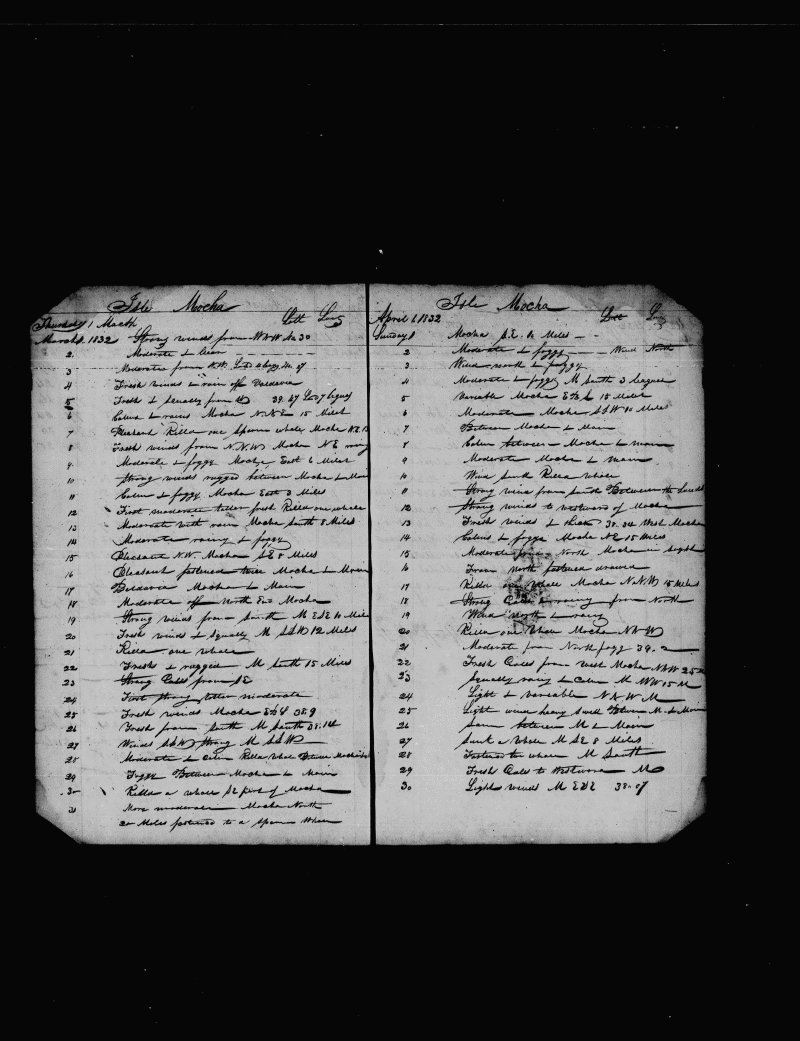 Isle Mocha
Thursday 1 March Latt Long
March 1. 1832 Strong winds from
2 Moderate & clear
3 Moderate from
4 Fresh winds & rain off Valdevia
5 Fresh & squally from 39.
6 Calm & rainy Mocha N.N.E 15 Miles
7 Pleasant Killd one Sperm whale Mocha
8 Fresh winds from N.N.W Mocha N E
9 Moderate & foggy Mocha East 6 Miles
10 Strong winds rugged between Mocha & Main
11 Calm & foggy. Mocha East 3 Miles
12 First moderate latter fresh Killd one whale
13 Moderate with rain Mocha South 8 Miles
14 Moderate rainy & foggy
15 Pleasant N.W. Mocha S E 8 Miles
16 Pleasant fastened three Mocha & Main
17 Mocha & Main
18 Moderate off North End Mocha
19 Strong winds from South M ESE 10 Miles
20 Fresh winds & Squally M SSW 12 Miles
21 Killd one whale
22 Fresh & rugged M South 15 Miles
23 Strong Gales from SE
24 First strong latter moderate
25 Fresh winds Mocha 38.9
26 Fresh from South M South 38.14
27 Winds SSW strong M SSW
28 Moderate & calm Killd Whale Between
29 Foggy Between Mocha & Main
30 Killd a whale SE part of Mocha
31 More moderate Mocha North
20 Miles fastened to a Sperm Whale
Isle Mocha
April 1. 1832 Latt Long
Sunday 1 Mocha S.E. Miles
2 Moderate & foggy Wind North
3 Wind north & foggy
4 Moderate & foggy M South 3 leagues
5 Variable Mocha 15 Miles
6 Moderate Mocha SSW 10 Miles
7 Between Mocha & Main
8 Calm between Mocha & main
9 Moderate Mocha & main
10 Wind South Killd Whale
11 Strong wind from South Between the
12 Strong winds to westward of Mocha
13 Fresh winds & thick 38.34 West Mocha
14 Calm & foggy Mocha NE 15 Miles
15 Moderate from North Mocha in sight
16 From North fastened
17 Killd one whale Mocha N.N.W 15 Miles
18 Strong Gales & rainy from North
19 Wind North & rainy
20 Killd one Whale Mocha NNW
21 Moderate from North foggy 39.2
22 Fresh Gales from west Mocha NNW
23 Squally rainy & Calm M NW 15 M
24 Light & Variable N N W M
25 Light wind heavy swell Between M & Main
26 Same between M & Main
27 Sunk a Whale M S E 8 Miles
28 Fastened to whale M South
29 Fresh Gales to Westward M
30 Light winds M ESE 38.07